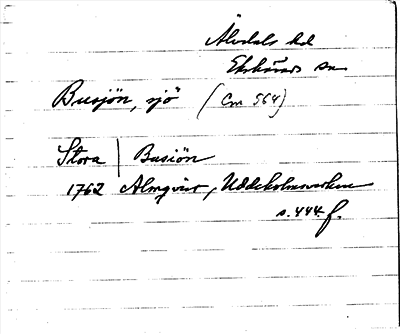 Älvdals hd
Ekshärads sn
Busjön, sjö (Cm 564)
Stora | Busiön
1762 Almqvist, Uddeholmsverken
s. 444 f.